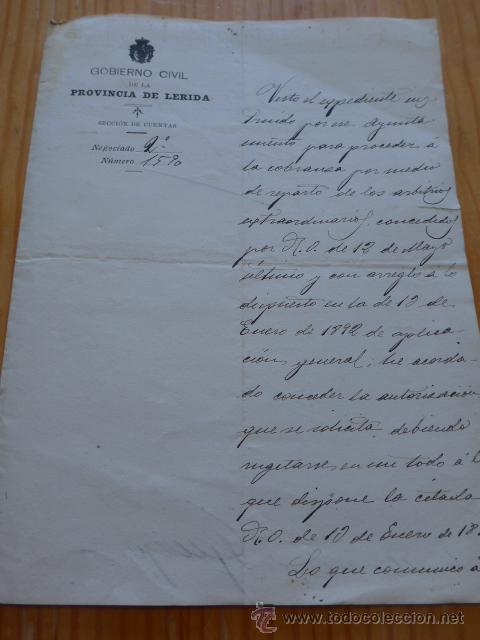 GOBIERNO CIVIL
DE LA
PROVINCIA DE LERIDA
SECCIÓN DE CUENTAS
Negociado 2.º
Número 1590
Visto el expediente ins
truido por ese Ayunta
miento para proceder á
la cobranza por medio
de reparto de los arbitrios
extraordinarios, concedidos
por R.O. de 12 de Mayo
último y con arreglo á lo
dispuesto en la de 13 de
Enero de 1892 de aplica
ción general, he acorda
do conceder la autorización
que se solicita debiendo
sugetarse en un todo á l
que dispone la citada
R.O. de 10 de Enero de 18
Lo que comunico á
todocoleccion
www.todocoleccion.net